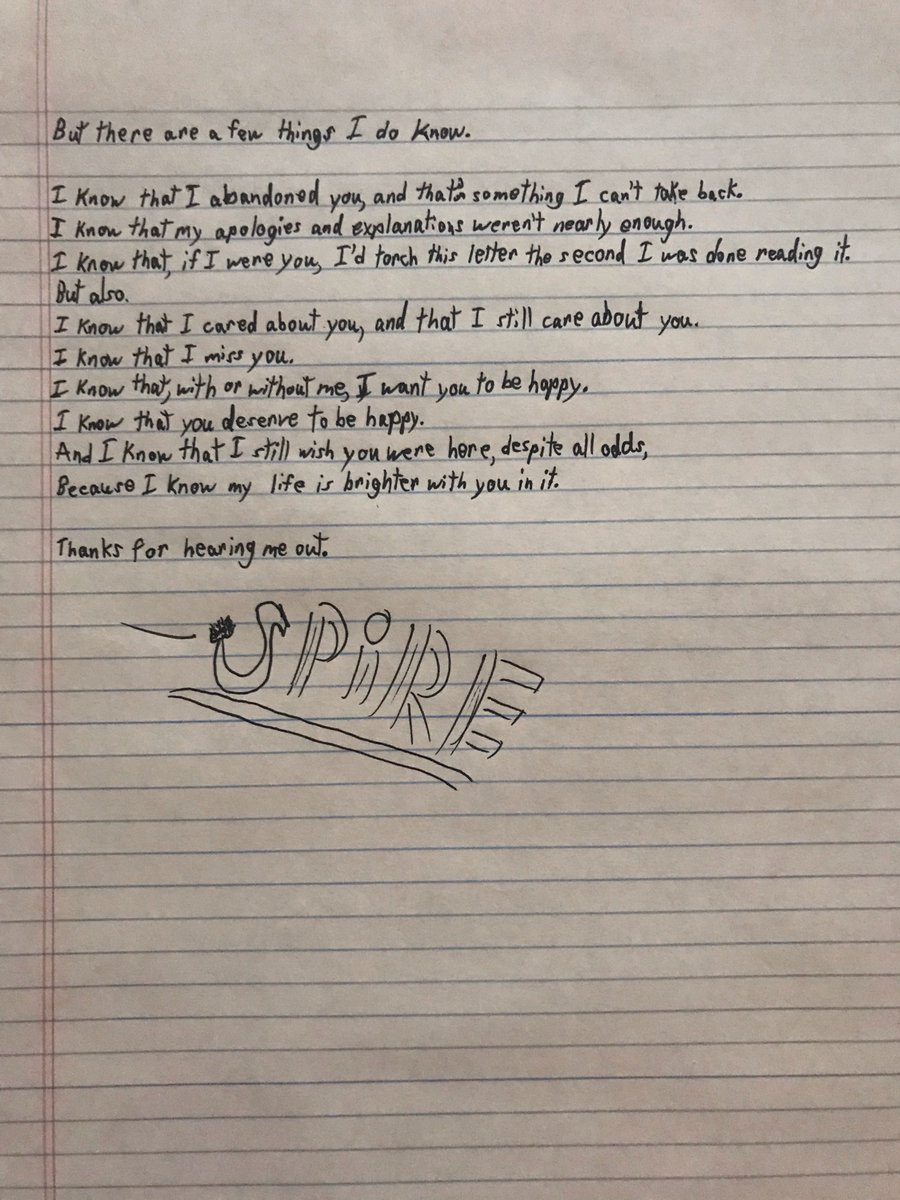 But there are a few things I do know.
I know that I abandoned you, and that's something I can't take back.
I know that my apologies and explanations weren't nearly enough.
I know that, if I were you, I'd torch this letter the second I was done reading it.
But also.
I know that I cared about you, and that I still care about you.
I know that I miss you.
I know that, with or without me, I want you to be happy.
I know that you deserve to be happy.
And I know that I still wish you were here, despite all odds,
Because I know my life is brighter with you in it.
Thanks for hearing me out.
SPiRE